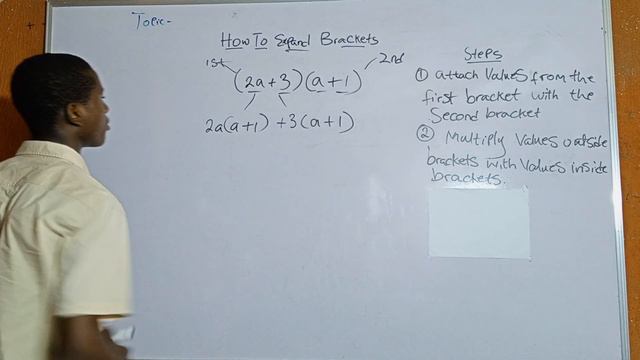 Topic-
How To Expand Brackets
1st
2nd
(2a+3)(a+1)
2a(a+1) +3(a+1)
Steps
① attach Values from the
first bracket with the
Second bracket
② Multiply Values outside
brackets with Values inside
brackets.